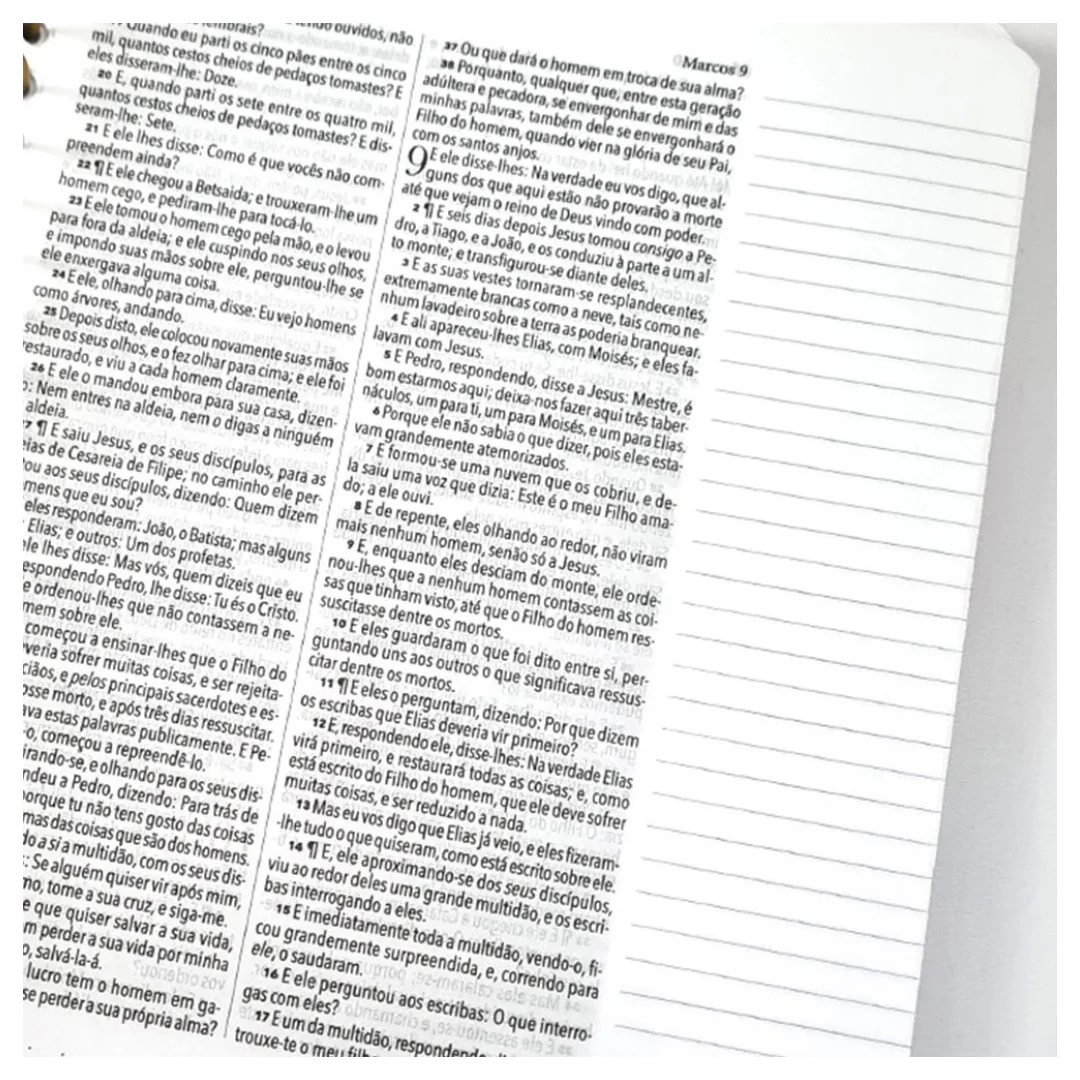 ouvidos, não
Quando eu parti os cinco pães entre os cinco
mil, quantos cestos cheios de pedaços tomastes? E
eles disseram-lhe: Doze.
20 E, quando parti os sete entre os quatro mil,
quantos cestos cheios de pedaços tomastes? E dis-
seram-lhe: Sete.
21 E ele lhes disse: Como é que vocês não com-
preendem ainda?
22 ¶ E ele chegou a Betsaida; e trouxeram-lhe um
homem cego, e pediram-lhe para tocá-lo.
23 E ele tomou o homem cego pela mão, e o levou
para fora da aldeia; e ele cuspindo nos seus olhos,
e impondo suas mãos sobre ele, perguntou-lhe se
ele enxergava alguma coisa.
24 E ele, olhando para cima, disse: Eu vejo homens
como árvores, andando.
25 Depois disto, ele colocou novamente suas mãos
sobre os seus olhos, e o fez olhar para cima; e ele foi
restaurado, e viu a cada homem claramente.
26 E ele o mandou embora para sua casa, dizen-
Nem entres na aldeia, nem o digas a ninguém
aldeia.
¶ E saiu Jesus, e os seus discípulos, para as
de Cesareia de Filipe; no caminho ele per-
aos seus discípulos, dizendo: Quem dizem
que eu sou?
eles responderam: João, o Batista; mas alguns
Elias; e outros: Um dos profetas.
lhes disse: Mas vós, quem dizeis que eu
Pedro, lhe disse: Tu és o Cristo.
ordenou-lhes que não contassem a ne-
sobre ele.
começou a ensinar-lhes que o Filho do
sofrer muitas coisas, e ser rejeita-
e pelos principais sacerdotes e es-
morto, e após três dias ressuscitar.
estas palavras publicamente. E Pe-
começou a repreendê-lo.
e olhando para os seus dis-
a Pedro, dizendo: Para trás de
tu não tens gosto das coisas
mas das coisas que são dos homens.
a si a multidão, com os seus dis-
Se alguém quiser vir após mim,
tome a sua cruz, e siga-me.
que quiser salvar a sua vida,
perder a sua vida por minha
salvá-la-á.
lucro tem o homem em ga-
se perder a sua própria alma?
Marcos 9
37 Ou que dará o homem em troca de sua alma?
38 Porquanto, qualquer que, entre esta geração
adúltera e pecadora, se envergonhar de mim e das
minhas palavras, também dele se envergonhará o
Filho do homem, quando vier na glória de seu Pai,
com os santos anjos.
9 E ele disse-lhes: Na verdade eu vos digo, que al-
guns dos que aqui estão não provarão a morte
até que vejam o reino de Deus vindo com poder.
2 ¶ E seis dias depois Jesus tomou consigo a Pe-
dro, a Tiago, e a João, e os conduziu à parte a um al-
to monte; e transfigurou-se diante deles.
3 E as suas vestes tornaram-se resplandecentes,
extremamente brancas como a neve, tais como ne-
nhum lavadeiro sobre a terra as poderia branquear.
4 E ali apareceu-lhes Elias, com Moisés; e eles fa-
lavam com Jesus.
5 E Pedro, respondendo, disse a Jesus: Mestre, é
bom estarmos aqui; deixa-nos fazer aqui três taber-
náculos, um para ti, um para Moisés, e um para Elias.
6 Porque ele não sabia o que dizer, pois eles esta-
vam grandemente atemorizados.
7 E formou-se uma nuvem que os cobriu, e de-
la saiu uma voz que dizia: Este é o meu Filho ama-
do; a ele ouvi.
8 E de repente, eles olhando ao redor, não viram
mais nenhum homem, senão só a Jesus.
9 E, enquanto eles desciam do monte, ele orde-
nou-lhes que a nenhum homem contassem as coi-
sas que tinham visto, até que o Filho do homem res-
suscitasse dentre os mortos.
10 E eles guardaram o que foi dito entre si, per-
guntando uns aos outros o que significava ressus-
citar dentre os mortos.
11 ¶ E eles o perguntam, dizendo: Por que dizem
os escribas que Elias deveria vir primeiro?
12 E, respondendo ele, disse-lhes: Na verdade Elias
virá primeiro, e restaurará todas as coisas; e, como
está escrito do Filho do homem, que ele deve sofrer
muitas coisas, e ser reduzido a nada.
13 Mas eu vos digo que Elias já veio, e eles fizeram-
-lhe tudo o que quiseram, como está escrito sobre ele.
14 ¶ E, ele aproximando-se dos seus discípulos,
viu ao redor deles uma grande multidão, e os escri-
bas interrogando a eles.
15 E imediatamente toda a multidão, vendo-o, fi-
cou grandemente surpreendida, e, correndo para
ele, o saudaram.
16 E ele perguntou aos escribas: O que interro-
gas com eles?
17 E um da multidão, respondendo
trouxe-te o meu